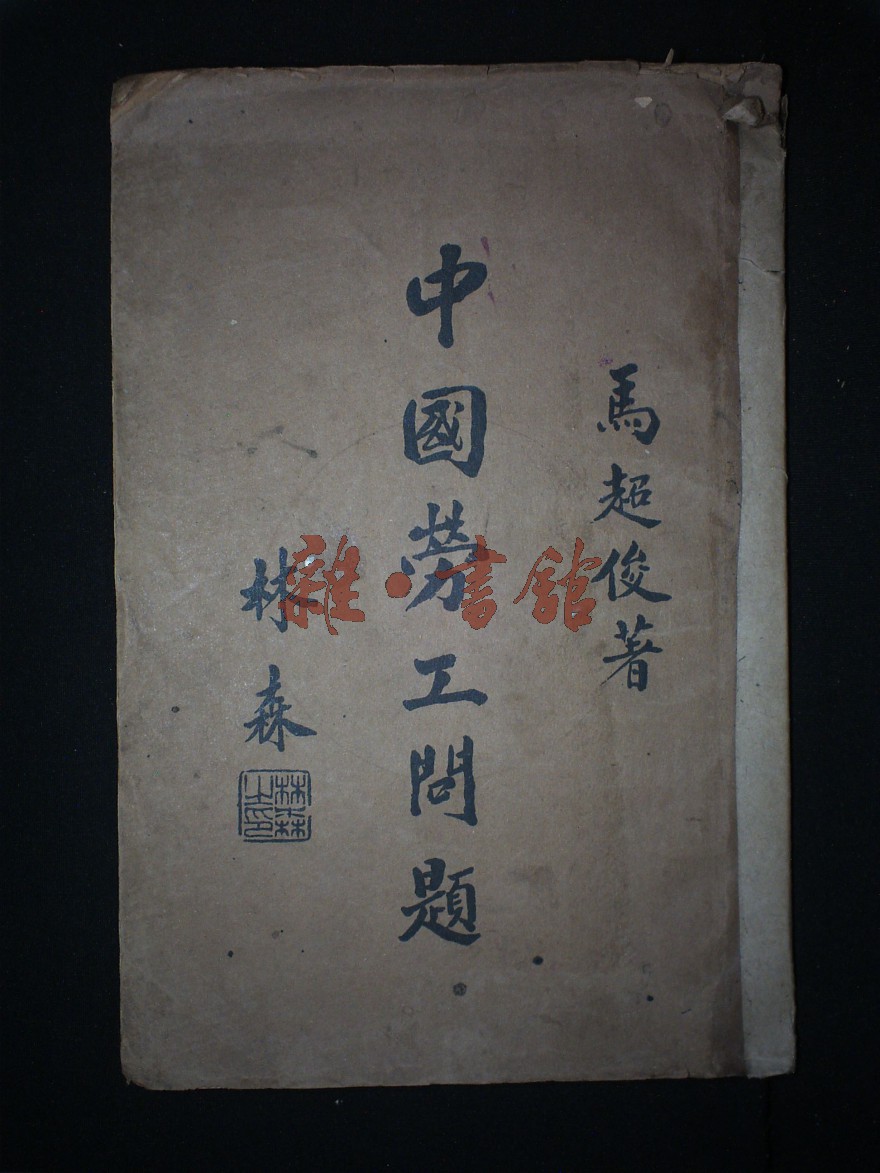 馬超俊著
中國勞工問題
林森
林森之印
雜·書館